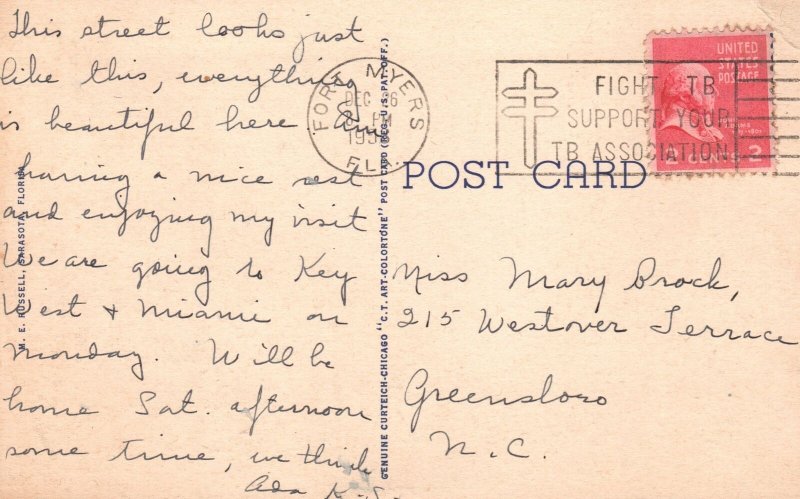 This street looks just
like this, everything
is beautiful here. Am
having a nice rest
and enjoying my visit
We are going to Key
West & Miami on
Monday. Will be
home Sat. afternoon
some time, we think
Ada K. S.
M. E. RUSSELL, SARASOTA, FLORIDA
GENUINE CURTEICH-CHICAGO "C.T. ART-COLORTONE" POST CARD (REG. U.S. PAT. OFF.)
FORT MYERS
DEC 26
PM
FLA.
FIGHT TB
SUPPORT YOUR
TB ASSOCIATION
UNITED
STATES
POSTAGE
2
POST CARD
Miss Mary Brock,
215 Westover Terrace
Greensboro
N.C.